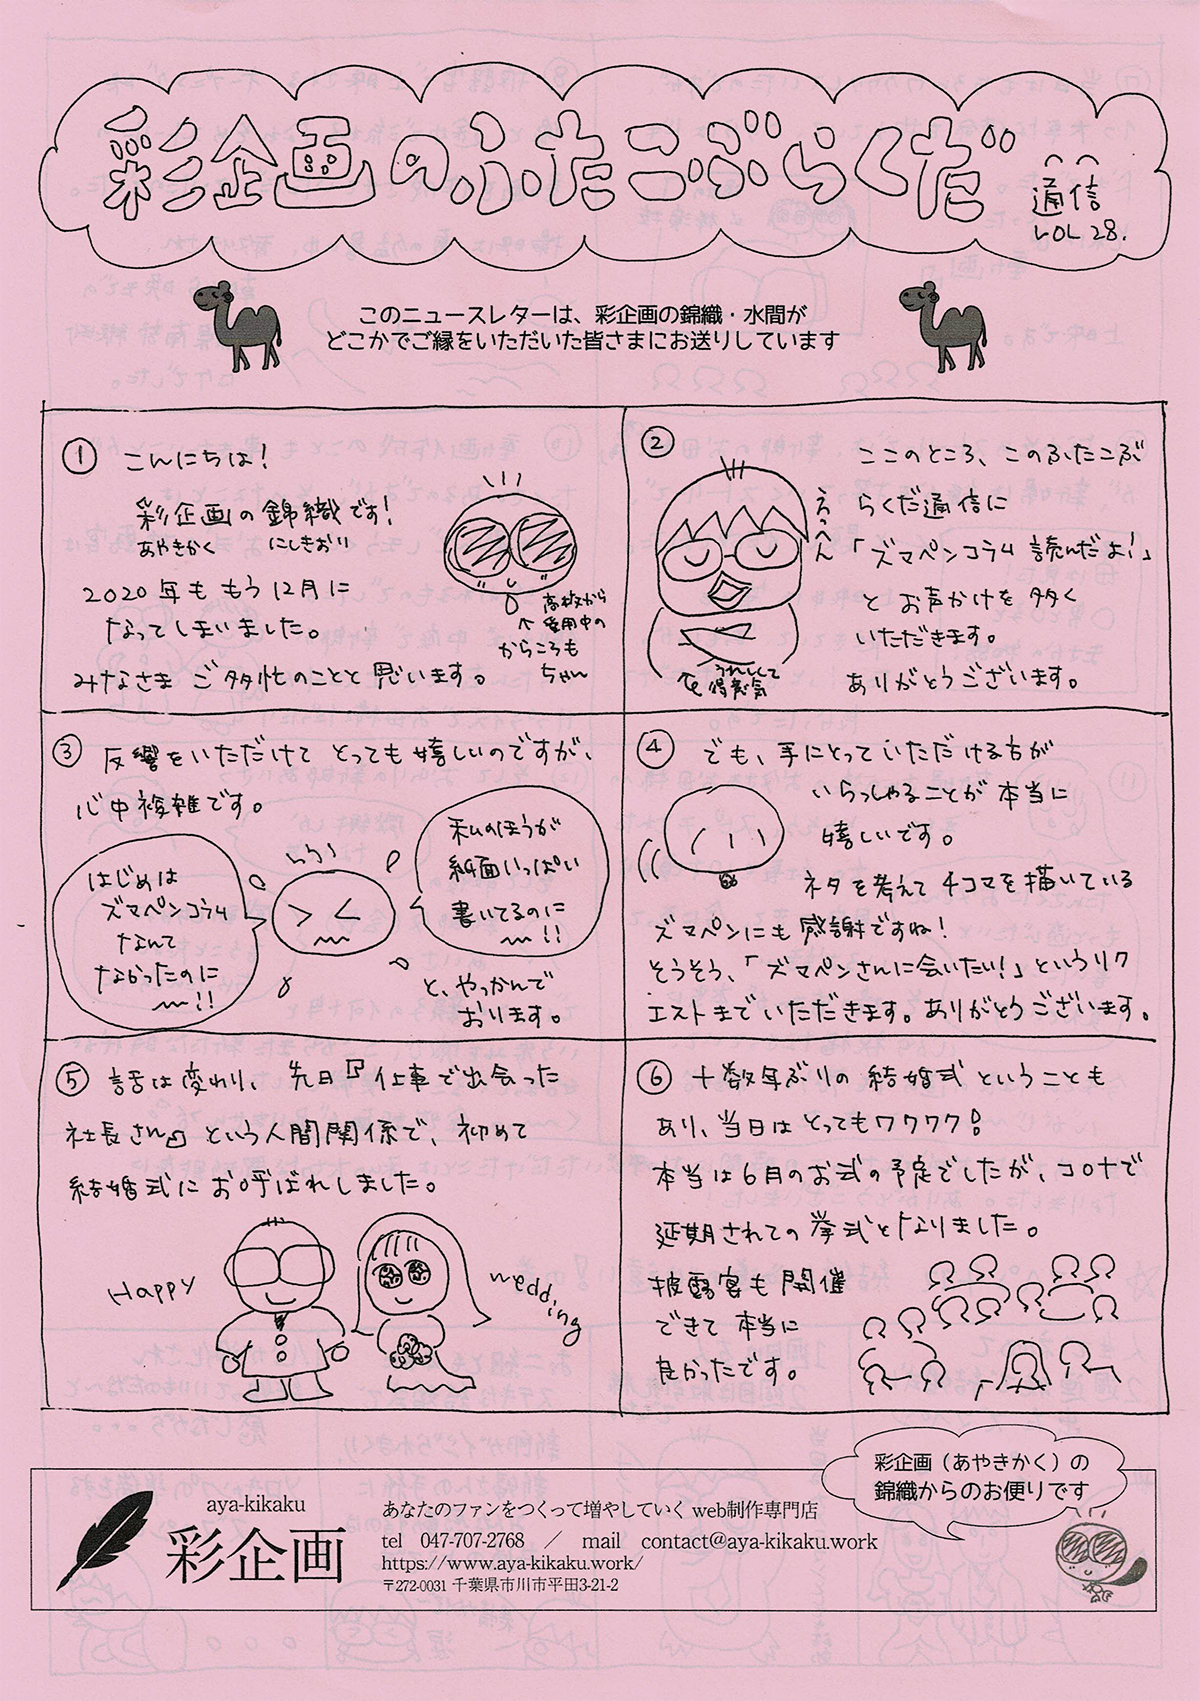 彩企画のふたこぶらくだ
通信
VOL 28.
このニュースレターは、彩企画の錦織・水間が
どこかでご縁をいただいた皆さまにお送りしています
① こんにちは!
彩企画の錦織です!
あやきかく にしきおり
2020年ももう12月に
なってしまいました。
みなさまご多忙のことと思います。
高校から
愛用中の
からころも
ちゃん
② ここのところ、このふたこぶ
らくだ通信に
「ズマペンコラム読んだよ!」
とお声かけを多く
いただきます。
ありがとうございます。
えっへん
うれしくて
得意気
③ 反響をいただけてとっても嬉しいのですが、
心中複雑です。
はじめは
ズマペンコラム
なんて
なかったのに
〜!!
私のほうが
紙面いっぱい
書いてるのに
〜!!
と、やっかんで
おります。
④ でも、手にとっていただける方が
いらっしゃることが本当に
嬉しいです。
ネタを考えて4コマを描いている
ズマペンにも感謝ですね!
そうそう、「ズマペンさんに会いたい!」というリク
エストまでいただきます。ありがとうございます。
⑤ 話は変わり、先日『仕事で出会った
社長さん』という人間関係で、初めて
結婚式にお呼ばれしました。
Happy
wedding
⑥ 十数年ぶりの結婚式ということも
あり、当日はとってもワクワク!
本当は6月のお式の予定でしたが、コロナで
延期されての挙式となりました。
披露宴も開催
できて本当に
良かったです。
彩企画（あやきかく）の
錦織からのお便りです
aya-kikaku
彩企画
あなたのファンをつくって増やしていく web制作専門店
tel 047-707-2768 ／ mail contact@aya-kikaku.work
https://www.aya-kikaku.work/
〒272-0031 千葉県市川市平田3-21-2